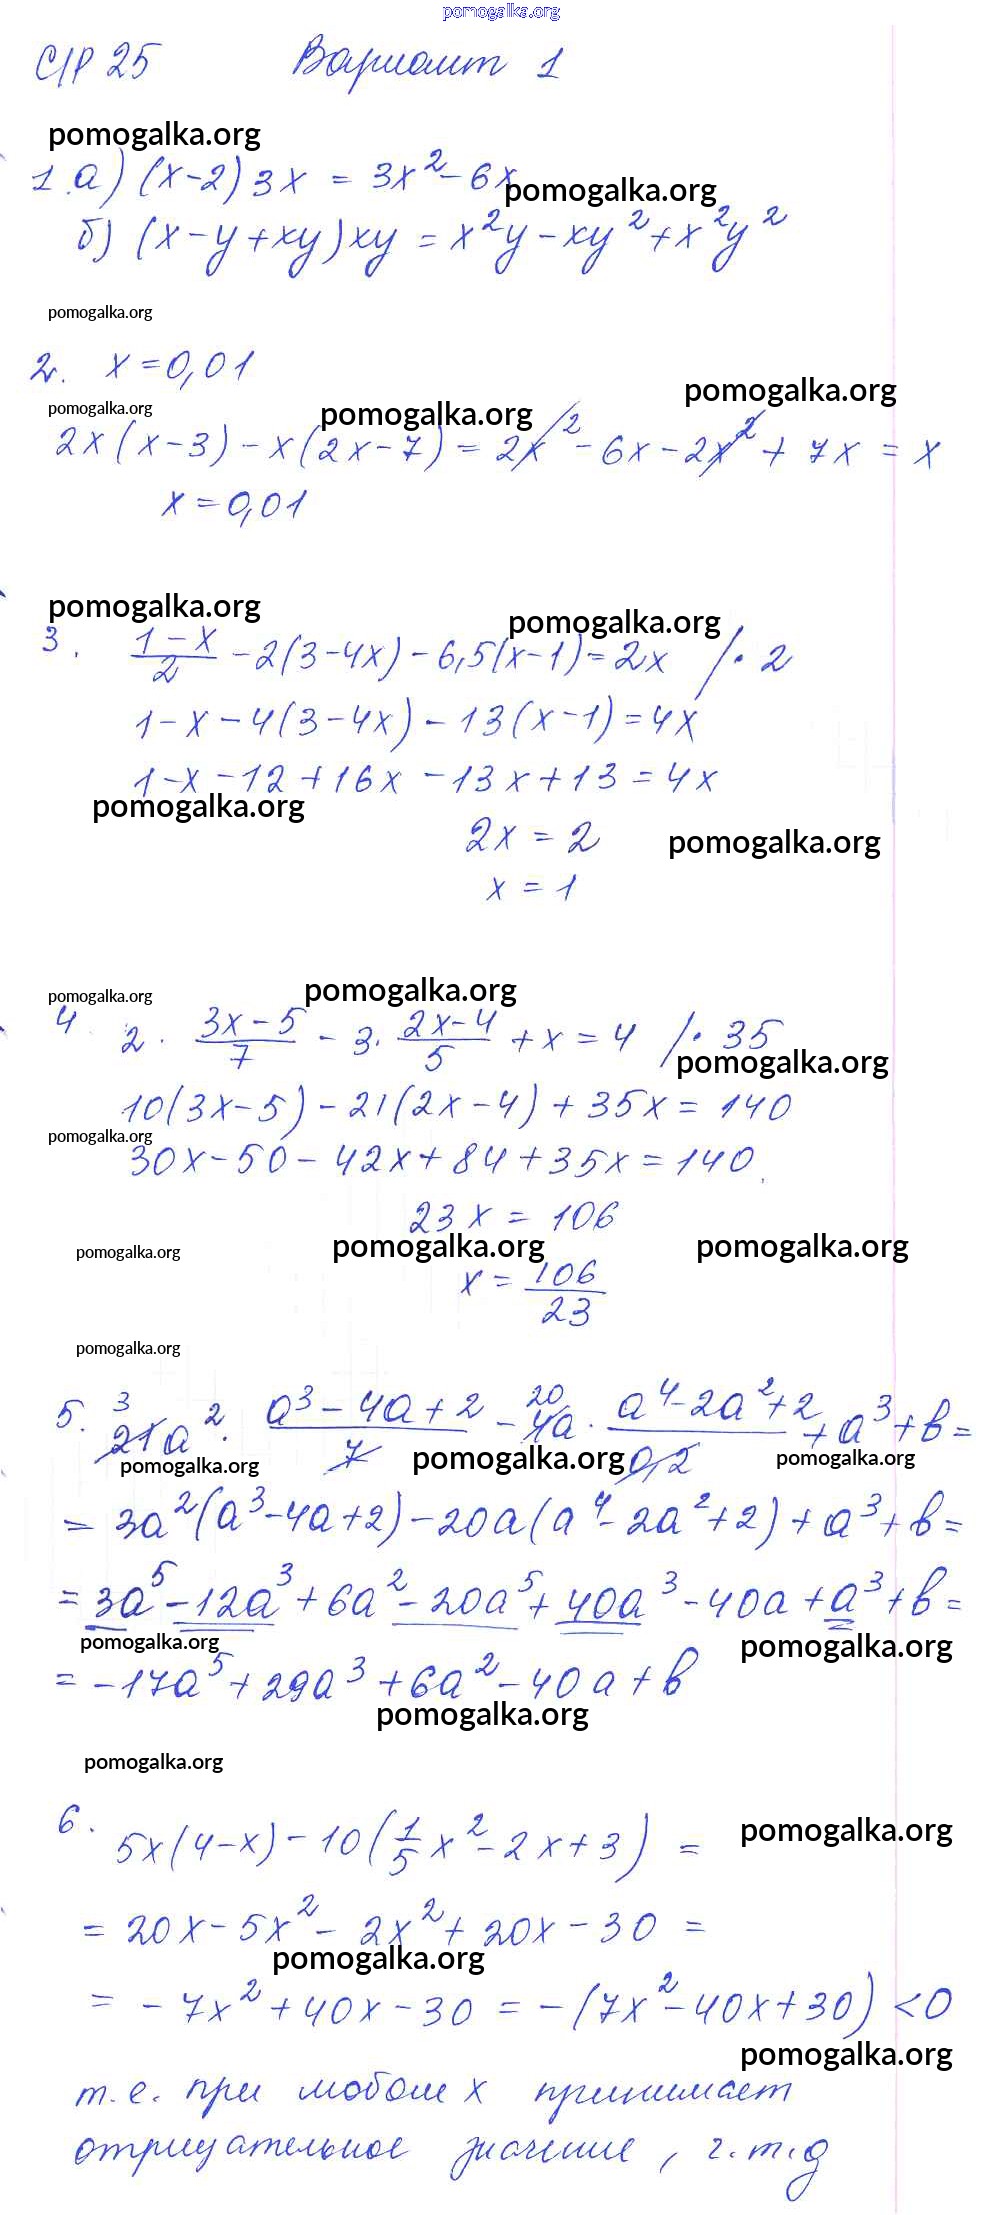 pomogalka.org
С/Р 25 Вариант 1
pomogalka.org
1.а) (x-2)3x = 3x²-6x
pomogalka.org
б) (x-y+xy)xy = x²y-xy²+x²y²
pomogalka.org
2. x=0,01
pomogalka.org pomogalka.org pomogalka.org
2x(x-3)-x(2x-7)=2x²-6x-2x²+7x=x
x=0,01
pomogalka.org pomogalka.org
3. (1-x)/2 -2(3-4x)-6,5(x-1)=2x /·2
1-x-4(3-4x)-13(x-1)=4x
1-x-12+16x-13x+13=4x
pomogalka.org
2x=2
pomogalka.org
x=1
pomogalka.org pomogalka.org
4. 2·(3x-5)/7 - 3·(2x-4)/5 + x = 4 /·35
pomogalka.org
10(3x-5)-21(2x-4)+35x=140
pomogalka.org
30x-50-42x+84+35x=140
23x=106
pomogalka.org pomogalka.org pomogalka.org
x=106/23
pomogalka.org
3 20
5. 21a²·(a³-4a+2)/7 - 4a·(a⁴-2a²+2)/0,2 + a³+b=
pomogalka.org pomogalka.org pomogalka.org
=3a²(a³-4a+2)-20a(a⁴-2a²+2)+a³+b=
=3a⁵-12a³+6a²-20a⁵+40a³-40a+a³+b=
pomogalka.org pomogalka.org
=-17a⁵+29a³+6a²-40a+b
pomogalka.org
pomogalka.org
6. 5x(4-x)-10(1/5x²-2x+3)=
pomogalka.org
=20x-5x²-2x²+20x-30=
pomogalka.org
=-7x²+40x-30=-(7x²-40x+30)<0
pomogalka.org
т.е. при любом x принимает
отрицательное значение, ч.т.д